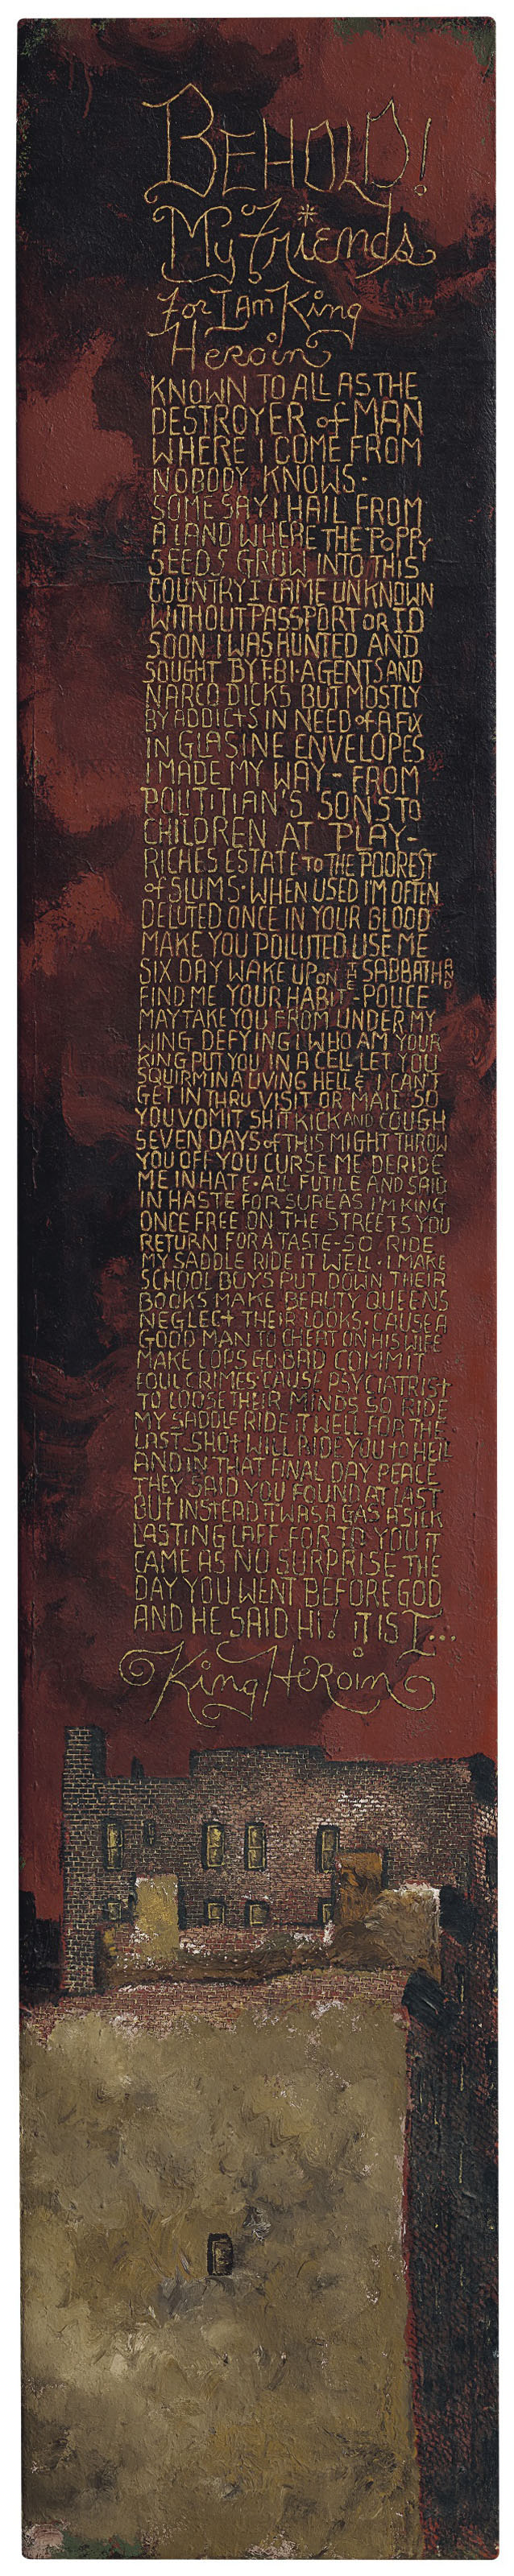 BEHOLD!
My Friends
For I Am King
Heroin
KNOWN TO ALL AS THE
DESTROYER of MAN
WHERE I COME FROM
NOBODY KNOWS.
SOME SAY I HAIL FROM
A LAND WHERE THE POPPY
SEEDS GROW INTO THIS
COUNTRY I CAME UNKNOWN
WITHOUT PASSPORT OR ID
SOON I WAS HUNTED AND
SOUGHT BY F.B.I. AGENTS AND
NARCO DICKS BUT MOSTLY
BY ADDICTS IN NEED of A FIX
IN GLASINE ENVELOPES
I MADE MY WAY - FROM
POLITITIAN'S SONS TO
CHILDREN AT PLAY-
RICHES ESTATE TO THE POOREST
of SLUMS. WHEN USED I'M OFTEN
DELUTED ONCE IN YOUR BLOOD
MAKE YOU POLLUTED USE ME
SIX DAY WAKE UP ON THE SABBATH AND
FIND ME YOUR HABIT - POLICE
MAY TAKE YOU FROM UNDER MY
WING DEFYING I WHO AM YOUR
KING PUT YOU IN A CELL LET YOU
SQUIRM IN A LIVING HELL & I CAN'T
GET IN THRU VISIT OR MAIL SO
YOU VOMIT SHIT KICK AND COUGH
SEVEN DAYS of THIS MIGHT THROW
YOU OFF YOU CURSE ME DERIDE
ME IN HATE. ALL FUTILE AND SAID
IN HASTE FOR SURE AS I'M KING
ONCE FREE ON THE STREETS YOU
RETURN FOR A TASTE-SO RIDE
MY SADDLE RIDE IT WELL. I MAKE
SCHOOL BOYS PUT DOWN THEIR
BOOKS MAKE BEAUTY QUEENS
NEGLECT THEIR LOOKS. CAUSE A
GOOD MAN TO CHEAT ON HIS WIFE
MAKE COPS GO BAD COMMIT
FOUL CRIMES. CAUSE PSYCIATRIST
TO LOOSE THEIR MINDS SO RIDE
MY SADDLE RIDE IT WELL FOR THE
LAST SHOT WILL RIDE YOU to HELL
AND IN THAT FINAL DAY PEACE
THEY SAID YOU FOUND AT LAST
BUT INSTEAD IT WAS A GAS A SICK
LASTING LAFF FOR TO YOU IT
CAME AS NO SURPRISE THE
DAY YOU WENT BEFORE GOD
AND HE SAID HI! IT IS I...
King Heroin